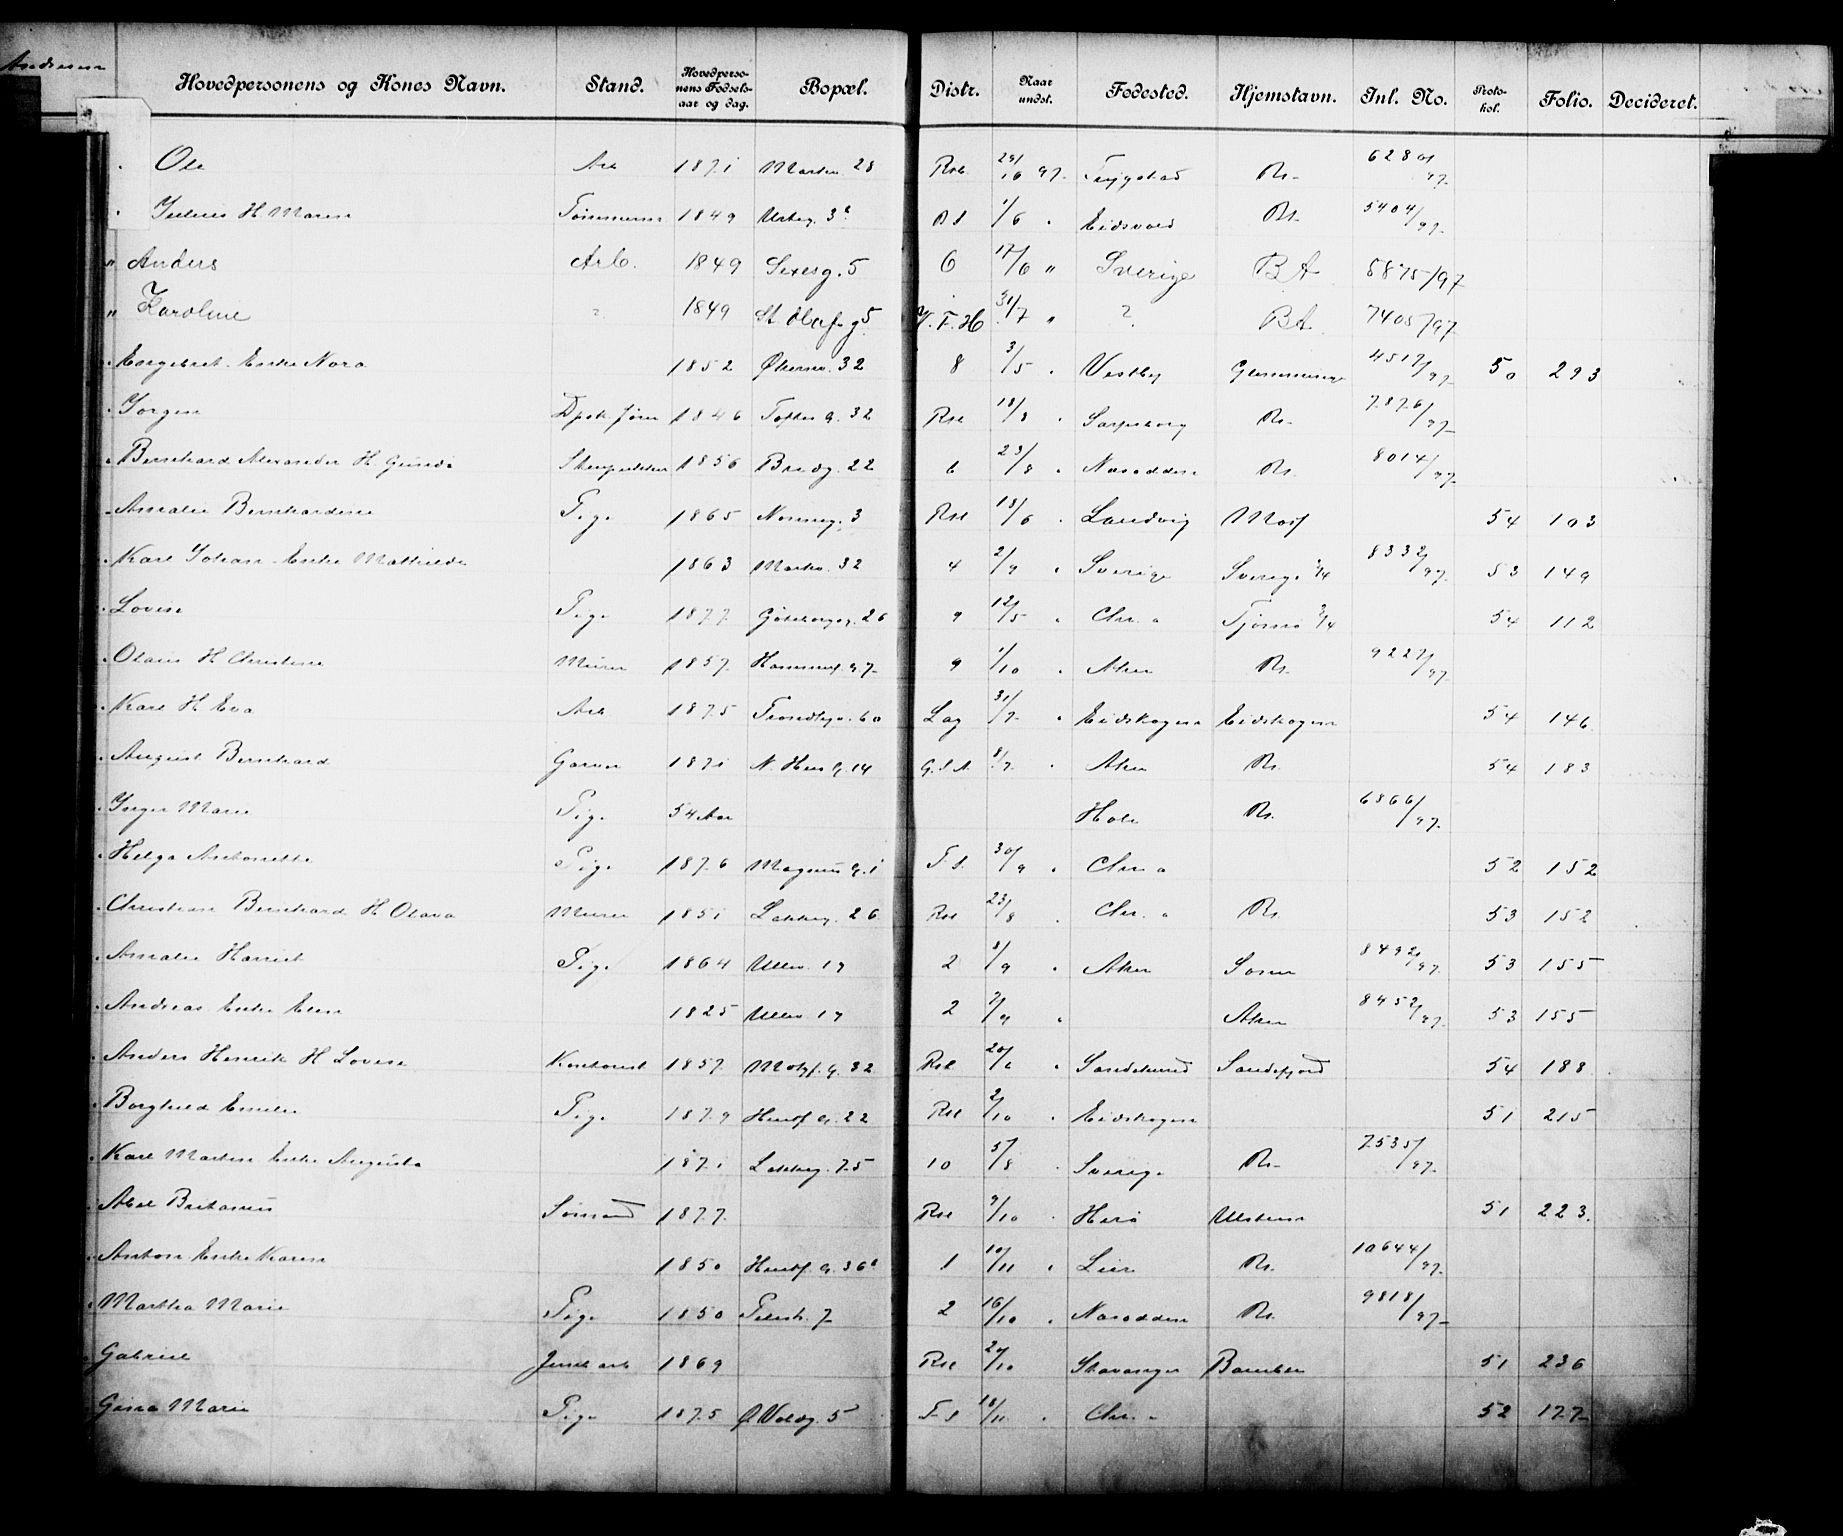 Andresen
Hovedpersonens og Kones Navn. Stand. Hovedperso-nens Fødsels-aar og dag. Bopæl. Distr. Naar undst. Fødested. Hjemstavn. Inl. No. Proto-kol. Folio. Decideret.
Ole Arb 1871 Markv. 28 Rst. 29/10 97. Trygstad Kr. 6280/97.
Julius H Maren Tømmerm 1849 Urteg. 3 1/6 " Eidsvold Kr. 5404/97.
" Anders Arb. 1849 Sexesg. 5 6 17/6 " Sverige BA 5875/97
" Karoline ? 1849 St. Olafs g 5 V. F. H 31/7 " ? BA. 7405/97
Engebret Enke Nora 1852 Økernv. 32 8 3/5 " Vestby Glemminge 4517/97. 50 293
Jørgen 1846 Toftes G. 32 Rst 18/8 " Sarpsborg Kr. 7876/97
Bernhard Alexander H Gunda 1856 Bredg. 22 6 23/8 " Nesodden Kr. 8014/97.
Amalie Bernhardine Pige 1865 Normeg. 3 Rst 18/6 " Landvig Moss 54 103
Karl Johan Enke Mathilde 1863 Markv. 32 4 2/9 " Sverige Sverige 3/4 8332/97. 53 149
Lovise Pige 1877. Göteborgg. 26 9 12/5 " Chr. a Tjømø 3/4 54 112
Olaus H Christine Murer 1857. Hammerf. g 7 9 1/10 " Aker Kr. 9227/97.
Karl H. Eva Arb 1875 Trondhjv. 60 Lag 31/7. " Eidskogen Eidskogen 54 146
August Bernhard Garver 1871 N. Hus G. 14 G.S.A. 8/7. " Aker Kr. 54 183
Inger Marie Pige 54 Aar Hole Kr. 6866/97.
Helga Antonette Pige 1876 Magnus G. 1 F. S. 30/9 " Chr. a 52 152
Christian Bernhard H. Olava Murer 1851 Lakkeg. 26 Rst 23/8 " Chr. a Kr. 53 152
Amalie Harriet Pige 1864 Ullev. 19 2 8/9 " Aker Soner 8492/97. 53 155
Andreas Enke Elen 1825 Ullev 19 2 7/9 " Aker 8452/97. 53 155
Anders Henrik H Lovise Kontorist 1857. Motzf. G. 32 Rst 20/6 " Sandesund Sandefjord 54 188
Borghild Emilie Pige 1879 Hausm. G. 22 Rst 2/10 " Eidskogen 51 215
Karl Martin Enke Augusta 1871 Lakkeg. 75 10 5/8 " Sverige Kr. 7535/97.
Abel Britanus Sømand 1877. Rst 9/10 " Herø Ulstein 51 223.
Anton Enke Karen 1850 Hausm. G. 36 1 10/11 " Lier Kr. 10644/97.
Martha Marie Pige 1850 Pilestr. 7 2 16/10 " Nesodden Kr. 9818/97
Gabriel Jernb arb 1869 Rst 29/10 Stavanger Bamble 51 236
Gina Marie Pige 1875 Ø Voldg. 5 F. S 18/11 " Chr. a 52 177